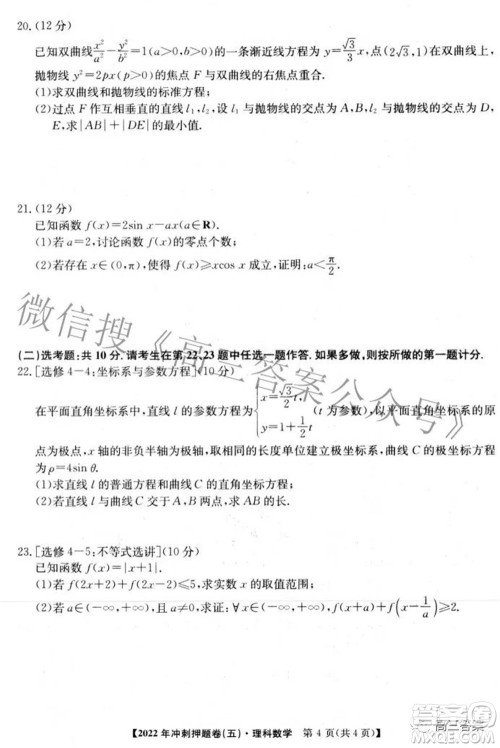 20.(12分)
已知双曲线x²/a²-y²/b²=1(a>0,b>0)的一条渐近线方程为y=√3/3x,点(2√3,1)在双曲线上,
抛物线y²=2px(p>0)的焦点F与双曲线的右焦点重合.
(1)求双曲线和抛物线的标准方程;
(2)过点F作互相垂直的直线l₁,l₂,设l₁与抛物线的交点为A,B,l₂与抛物线的交点为D,
E,求|AB|+|DE|的最小值.
21.(12分)
已知函数f(x)=2sin x-ax(a∈R).
(1)若a=2,讨论函数f(x)的零点个数;
(2)若存在x∈(0,π),使得f(x)≥xcos x成立,证明:a<π/2.
(二)选考题:共10分.请考生在第22、23题中任选一题作答.如果多做,则按所做的第一题计分.
22.[选修4-4:坐标系与参数方程](10分)
在平面直角坐标系中,直线l的参数方程为{x=√3/2t, y=1+1/2t (t为参数),以坐标原
点为极点,x轴的非负半轴为极轴,取相同的长度单位建立极坐标系,曲线C的极坐标方程
为ρ=4sin θ.
(1)求直线l的普通方程和曲线C的直角坐标方程;
(2)若直线l与曲线C交于A,B两点,求△OAB的面积.
23.[选修4-5:不等式选讲](10分)
已知函数f(x)=|x+1|.
(1)若f(2x+2)+f(2x)≤5,求x的取值范围;
(2)若a∈(-∞,+∞),且a≠0,求证:∀x∈(-∞,+∞),f(x+a)+f(x-1/a)≥2.
【2022年冲刺押题卷(五)·理科数学 第4页(共4页)】
微信搜《高三答案公众号》
高三答案